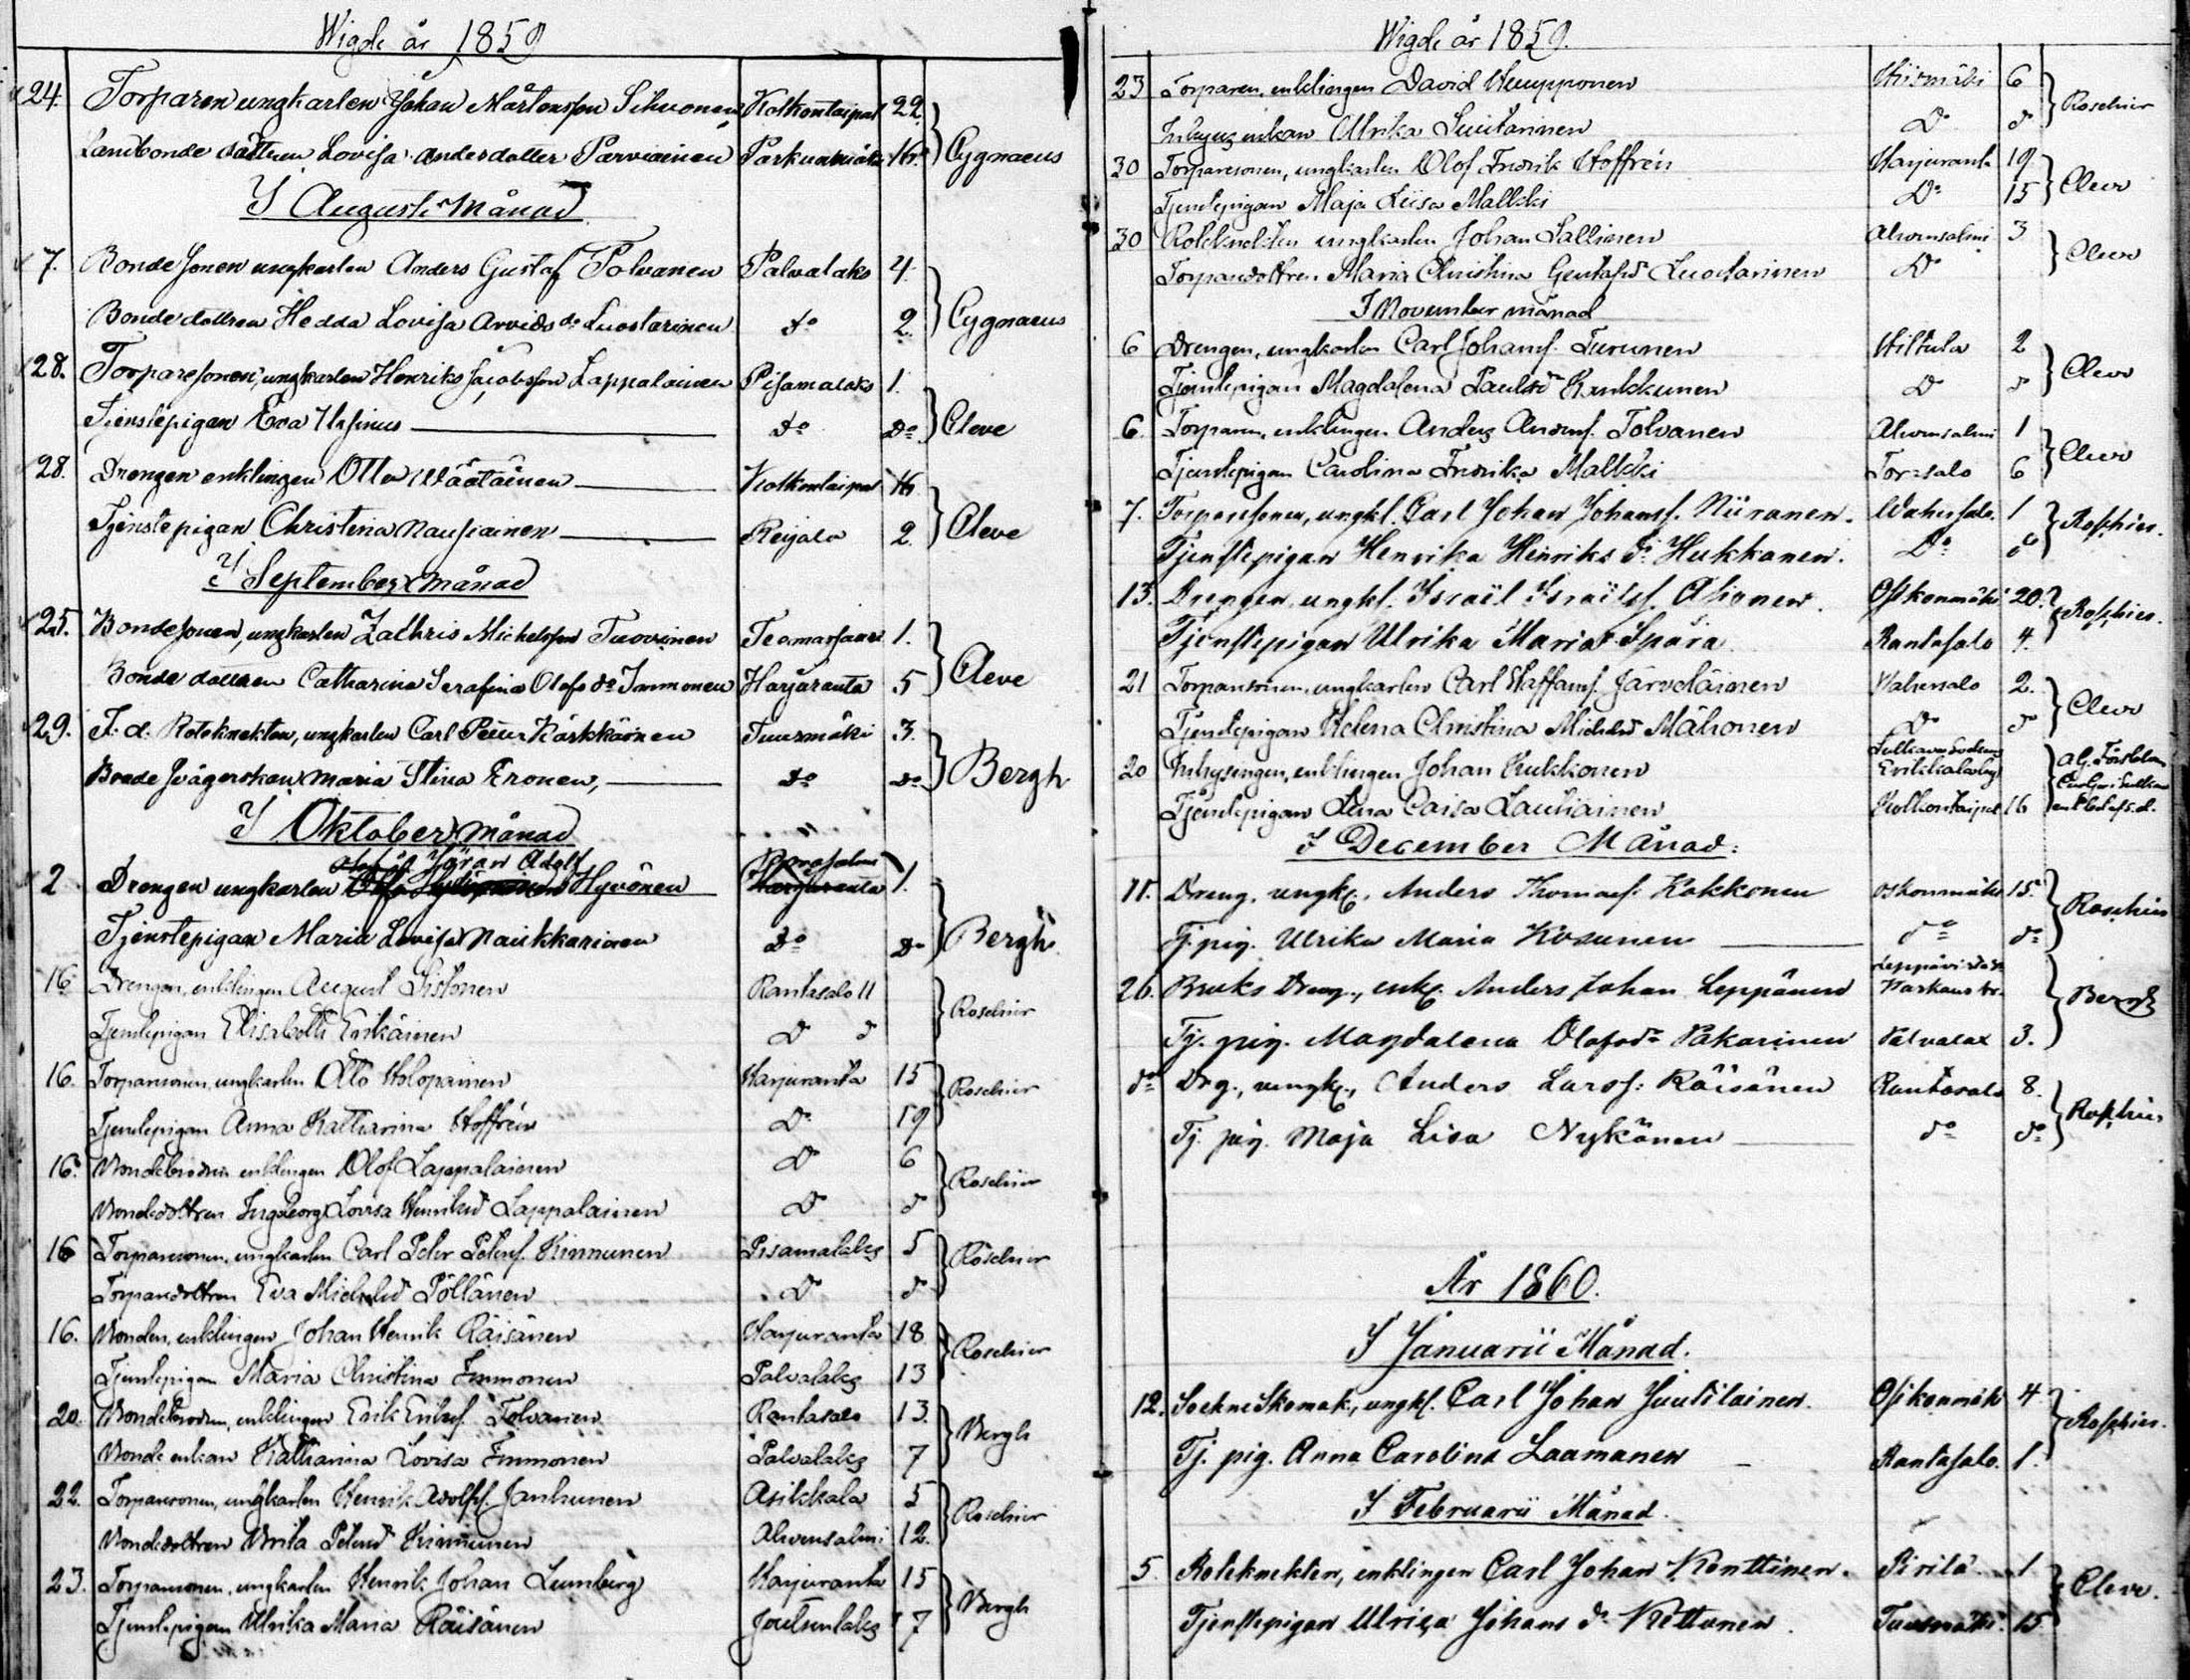 Wigde år 1859
24. Torparen ungkarlen Johan Mårtensson Sihvonen Kotkontaipal 22. Cygnaeus
Landbonde dottren Lovisa Andersdotter Parviainen Parkunmäki 16.
I Augusti Månad
7. Bondesonen ungkarlen Anders Gustaf Tolvanen Palvalaks 4. Cygnaeus
Bondedottren Hedda Lovisa Arvids dr Luostarinen do 2.
28. Torparesonen, ungkarlen Henrik Jacobsson Lappalainen Pisamalaks 1. Cleve
Tjenstepigan Eva Ursinus do do
28. Drengen enklingen Otto Väätäinen Kotkontaipal 16 Cleve
Tjenstepigan Christina Nousiainen Reijola 2.
I September Månad
25. Bondesonen, ungkarlen Zachris Michelsson Tuovinen Teemassaari 1. Cleve
Bonde dottren Catharina Serafina Olofs dr Immonen Harjuranta 5
29. F. d. Roteknekten, ungkarlen Carl Petter Kärkkäinen Tuusmäki 3. Bergh
Bonde svägerskan Maria Stina Eronen, do do
I Oktober Månad
2 Drengen ungkarlen Göran Adolf Hyvönen Harjuranta 1. Bergh
Tjenstepigan Maria Lovisa Naukkarinen do do
16 Drengen, enklingen August Sistonen Rantasalo 11 Roschier
Tjenstepigan Elisabeth Enikäinen Do do
16. Torparesonen, ungkarlen Otto Holopainen Harjuranta 15 Roschier
Tjenstepigan Anna Katharina Hoffrén Do 19
16. Bondebrodren enklingen Olof Lappalainen Do 6 Roschier
Bondedottren Ingeborg Lovisa Henriksdr Lappalainen Do do
16 Torparesonen, ungkarlen Carl Pehr Petersf. Kinnunen Pisamalaks 5 Roschier
Torparedottren Eva Michelsdr Pöllänen Do do
16. Bonden, enklingen Johan Henrik Räisänen Harjuranta 18 Roschier
Tjenstepigan Maria Christina Immonen Palvalaks 13
20. Bondebrodren, enklingen Erik Eriksf. Tolvanen Rantasalo 13. Bergh
Bonde enkan Katharina Lovisa Immonen Palvalaks 7
22. Torparesonen, ungkarlen Henrik Adolfsf. Janhunen Asikkala 5 Roschier
Bondedottren Brita Petersdr Kinnunen Ahvensalmi 12.
23. Torparesonen, ungkarlen Henrik Johan Lemberg Harjuranta 15 Bergh
Tjenstepigan Ulrika Maria Räisänen Joutsenlaks 7
Wigde år 1859.
23 Torparen, enklingen David Kempponen Hiismäki 6 Roschier
Inhyses enkan Ulrika Suutarinen Do do
30 Torparesonen, ungkarlen Olof Fredrik Hoffrén Harjurant. 19 Cleve
Tjenstepigan Maja Liisa Malkki Do 15
30 Rotknekten ungkarlen Johan Sallinen Ahvensalmi 3 Cleve
Torparedottren Maria Christina Gustafsdr Luostarinen Do
I November månad
6 Drengen, ungkarlen Carl Johansf. Turunen Hiltula 2 Cleve
Tjenstepigan Magdalena Paulsdr Kankkunen Do do
6. Torparen, enklingen Anders Andersf. Tolvanen Ahvensalmi 1 Cleve
Tjenstepigan Carolina Fredrika Malkki Torasalo 6
7. Torparesonen, ungkl. Carl Johan Johansf. Niiranen. Wahersalo. 1 Roschier.
Tjenstepigan Henrika Henriks dr Hukkanen. Do do
13. Drengen, ungkl. Israël Israëlsf. Asionen. Osikonmäki 20. Roschier.
Tjenstepigan Ulrika Maria Spåra Rantasalo 4.
21 Torparesonen, ungkarlen Carl Staffansf. Järveläinen Wahersalo 2. Cleve
Tjenstepigan Helena Christina Michelsdr Mähönen Do do
20 Inhysingen, enklingen Johan Kukkonen
Tjenstepigan Lena Caisa Lautiainen Kotkontaipal 16
I December Månad:
11. Dreng. ungk. Anders Thomasf. Kakkonen Osikonmäki 15. Roschier
Tj. pig. Ulrika Maria Kosunen do do
26. Bruks Dreng., enkl. Anders Johan Leppänen Leppävirta Warkaus br. Bergh
Tj. pig. Magdalena Olofsdr Pakarinen Palvalax 3.
do Drg., ungk., Anders Larsf: Räisänen Rantasalo 8. Roschier
Tj. pig. Maja Lisa Nykänen do do
År 1860.
I Januarii Månad.
12. Sockne Skomak., ungkl. Carl Johan Juutilainen. Osikonmäki 4. Roschier.
Tj. pig. Anna Carolina Laamanen Rantasalo. 1.
I Februarii Månad.
5. Roteknekten, enklingen Carl Johan Konttinen. Pirilä 1 Cleve.
Tjenstepigan Ulrica Johans dr Kettunen. Tuusmäki. 15.